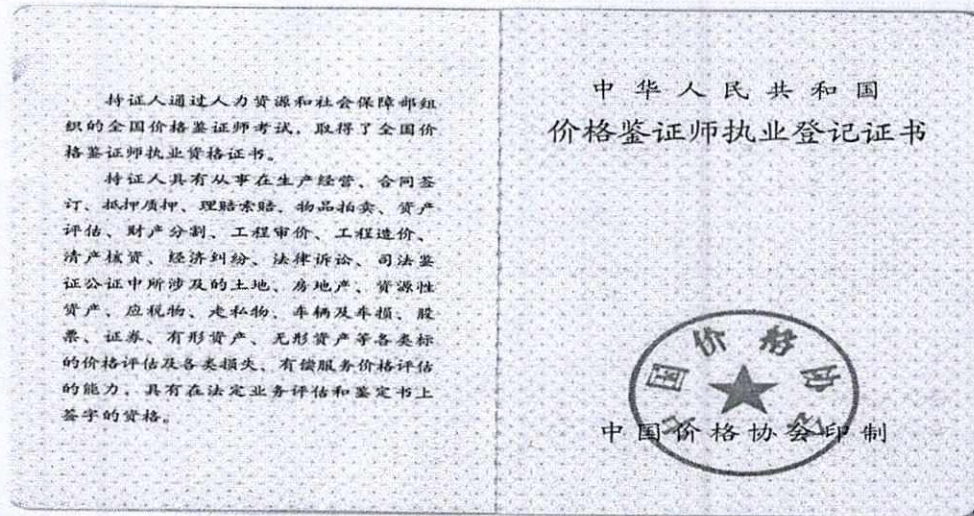 持证人通过人力资源和社会保障部组
织的全国价格鉴证师考试,取得了全国价
格鉴证师执业资格证书。
持证人具有从事在生产经营、合同签
订、抵押质押、理赔索赔、物品拍卖、资产
评估、财产分割、工程审价、工程造价、
清产核资、经济纠纷、法律诉讼、司法鉴
证公证中所涉及的土地、房地产、资源性
资产、应税物、走私物、车辆及车损、股
票、证券、有形资产、无形资产等各类标
的价格评估及各类损失、有偿服务价格评估
的能力,具有在法定业务评估和鉴定书上
签字的资格。
中华人民共和国
价格鉴证师执业登记证书
中国价格协会
中国价格协会印制